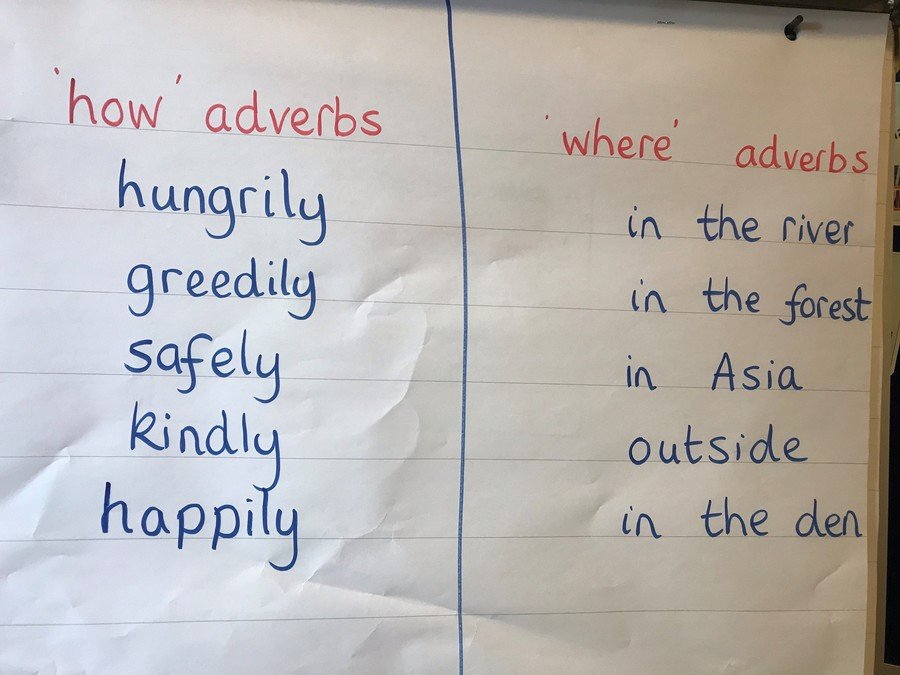 'how' adverbs
hungrily
greedily
safely
kindly
happily
'where' adverbs
in the river
in the forest
in Asia
outside
in the den